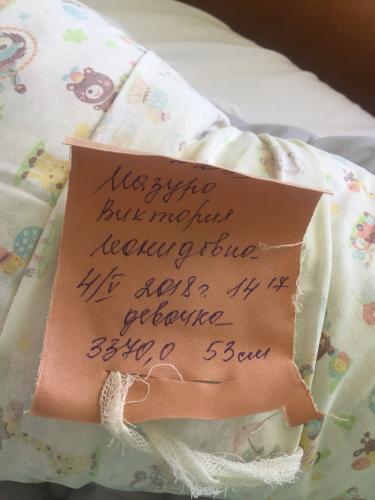 Мазуро
Виктория
Леонидовна
4/V 2018г. 14 17
девочка
3370,0 53см